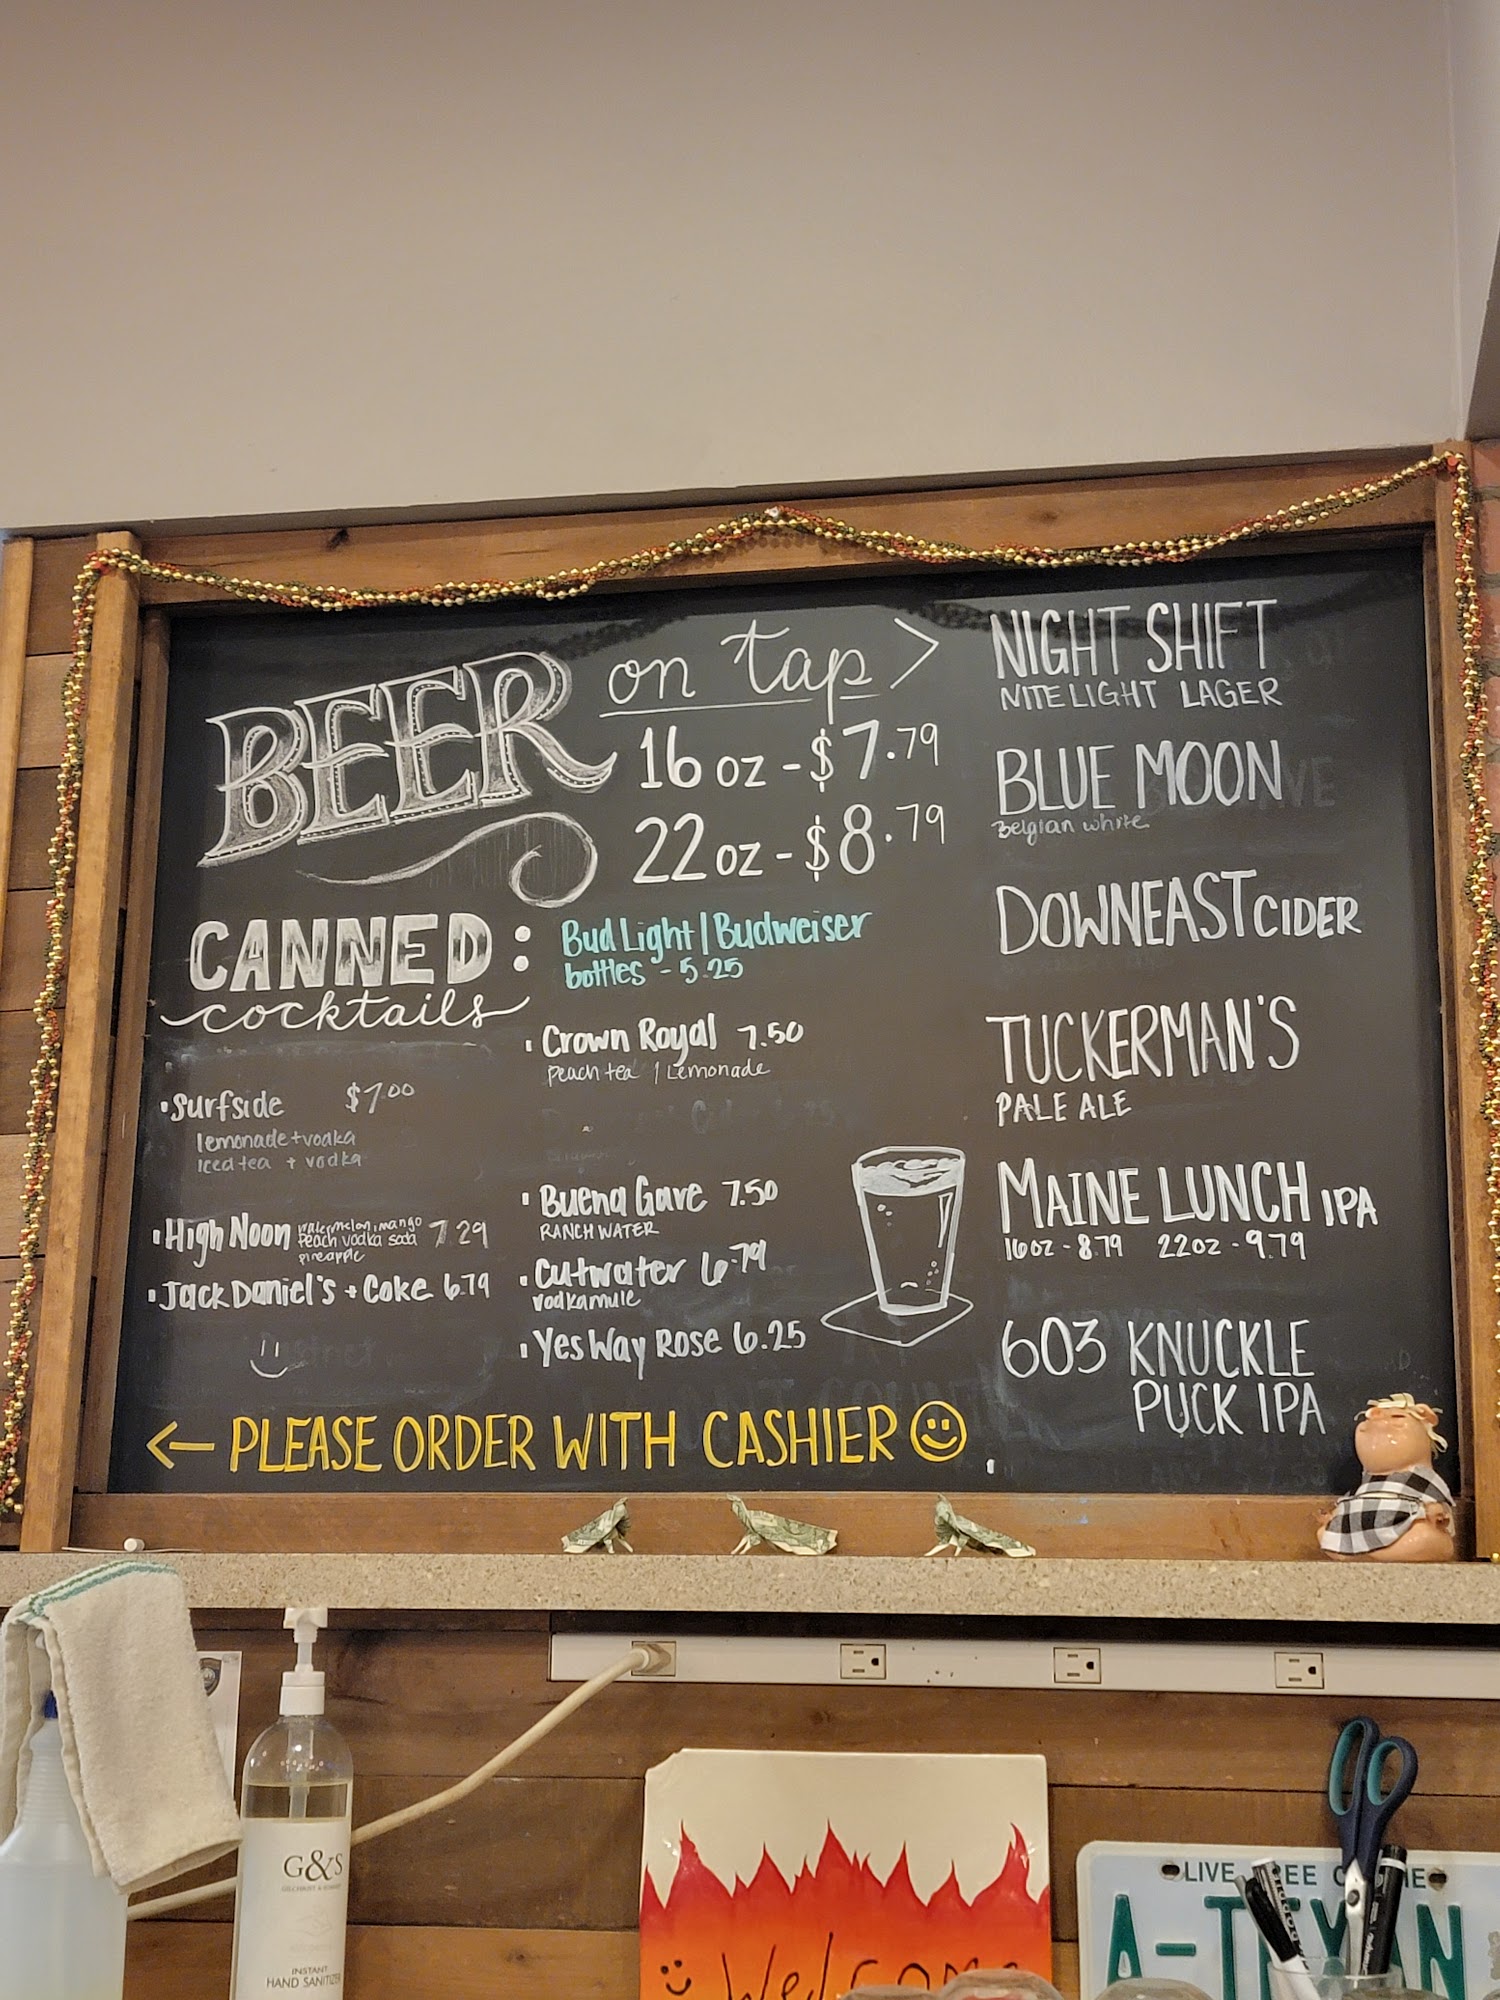 BEER on tap >
16 oz - $7.79
22 oz - $8.79
CANNED :
cocktails
Bud Light | Budweiser
bottles - 5.25
Surfside $7.00
lemonade + vodka
Iced tea + vodka
High Noon watermelon, mango 7.29
peach vodka soda
pineapple
Jack Daniel's + Coke 6.79
Crown Royal 7.50
peach tea / Lemonade
Buena Gave 7.50
RANCH WATER
Cutwater 6.79
vodka mule
Yes Way Rose 6.25
← PLEASE ORDER WITH CASHIER
NIGHT SHIFT
NITE LIGHT LAGER
BLUE MOON
Belgian white
DOWNEAST CIDER
TUCKERMAN'S
PALE ALE
MAINE LUNCH IPA
16oz - 8.79 22oz - 9.79
603 KNUCKLE
PUCK IPA
G&S
INSTANT
HAND SANITIZER
Welcome
LIVE FREE OR DIE
A-TEXAN